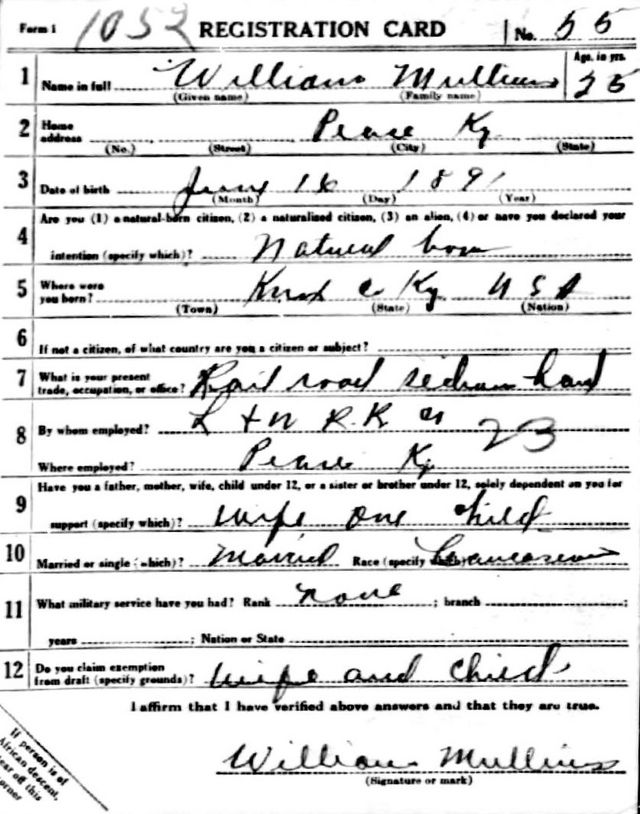 Form 1 1052 REGISTRATION CARD No. 55
1 Name in full William Mullins Age, in yrs. 25
(Given name) (Family name)
2 Home address Ky
(No.) (Street) (City) (State)
3 Date of birth June 16 1891
(Month) (Day) (Year)
4 Are you (1) a natural-born citizen, (2) a naturalized citizen, (3) an alien, (4) or have you declared your
intention (specify which)? Natural born
5 Where were you born? Knox Co Ky USA
(Town) (State) (Nation)
6 If not a citizen, of what country are you a citizen or subject?
7 What is your present trade, occupation, or office? Rail road section hand
8 By whom employed? L + N R.R. 23
Where employed? Ky
9 Have you a father, mother, wife, child under 12, or a sister or brother under 12, solely dependent on you for
support (specify which)? wife one child
10 Married or single (which)? Married Race (specify which)? Caucasian
11 What military service have you had? Rank none ; branch ;
years ; Nation or State
12 Do you claim exemption from draft (specify grounds)? wife and child
I affirm that I have verified above answers and that they are true.
William Mullins
(Signature or mark)
If person is of
African descent,
tear off this
corner